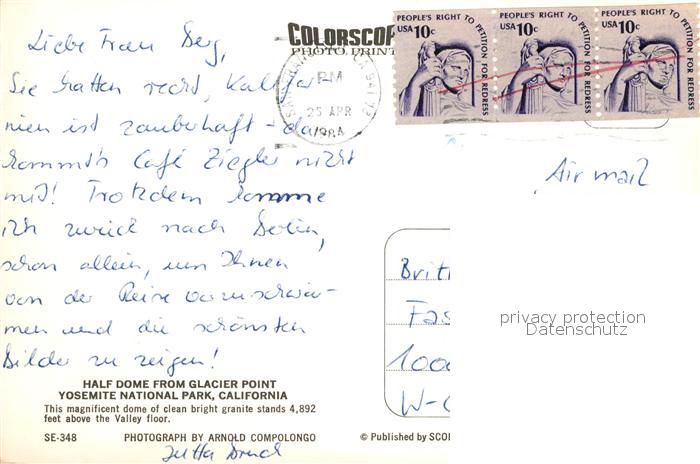 COLORSCOP
PHOTO PRINT
PEOPLE'S RIGHT TO PETITION FOR REDRESS
USA 10c
PEOPLE'S RIGHT TO PETITION FOR REDRESS
USA 10c
PEOPLE'S RIGHT TO PETITION FOR REDRESS
USA 10c
PM
25 APR
Liebe Frau Berg,
Sie hatten recht, Kalifor-
nien ist zauberhaft - da
kommt's Café Ziegler nicht
mit! Trotzdem komme
ich zurück nach Berlin,
schon allein, um Ihnen
von der Reise vorzuschwär-
men und die schönsten
Bilder zu zeigen!
Jutta
Air mail
Britt
Fas
100
W-
privacy protection
Datenschutz
HALF DOME FROM GLACIER POINT
YOSEMITE NATIONAL PARK, CALIFORNIA
This magnificent dome of clean bright granite stands 4,892
feet above the Valley floor.
SE-348 PHOTOGRAPH BY ARNOLD COMPOLONGO © Published by SCO